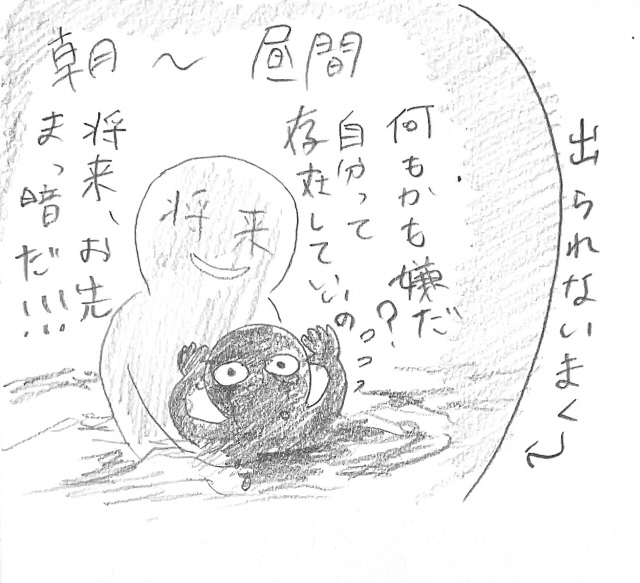 朝～昼間
出られないまく〜
何もかも嫌だ
自分って
存在していいの?
将来、お先
まっ暗だ!!!
将来